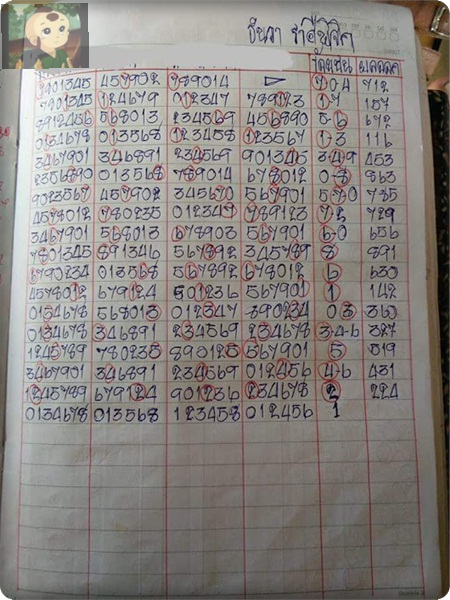 ธันวา
7901345 457902 789014 7-0-4 712
7901345 124679 012347 789123 1-7 157
8912456 568013 234569 456890 5-6 672
0134678 013568 123458 123567 1-3 116
3467901 346891 234569 901345 3-4-9 453
2356890 013568 789014 678012 0-8 863
9023567 457902 345670 567901 5-7-0 735
4578012 780235 012347 789123 7-2 729
3467901 568013 678903 567901 6-0 656
7801345 891346 567892 345789 8 891
6790234 013568 567892 678012 6 630
4578012 679124 901236 567901 1 142
0134678 568013 012347 890234 0-3 360
0134678 346891 234569 012456 3-4-6 327
1245789 780235 890125 567901 5 519
3467901 346891 234569 012456 4-6 431
1245789 679124 901236 234678 2 224
0134678 013568 123458 012456 1